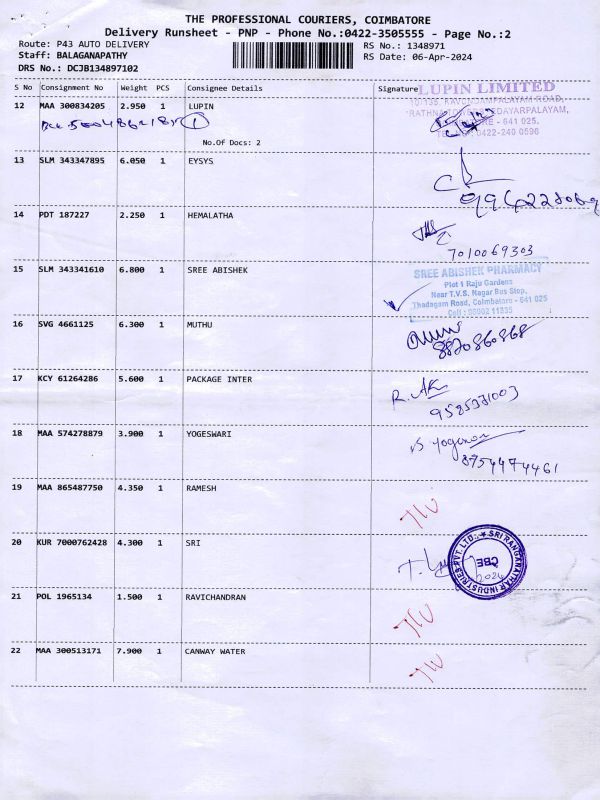 THE PROFESSIONAL COURIERS, COIMBATORE
Delivery Runsheet - PNP - Phone No.:0422-3505555 - Page No.:2
Route: P43 AUTO DELIVERY RS No.: 1348971
Staff: BALAGANAPATHY RS Date: 06-Apr-2024
DRS No.: DCJB134897102
S No Consignment No Weight PCS Consignee Details Signature
LUPIN LIMITED
12 MAA 300834205 2.950 1 LUPIN
PHONE - 641 025.
0422-240 0596
1
No.Of Docs: 2
13 SLM 343347895 6.050 1 EYSYS
14 PDT 187227 2.250 1 HEMALATHA
7010069303
15 SLM 343341610 6.800 1 SREE ABISHEK
SREE ABISHEK PHARMACY
Plot 1 Raju Gardens
Near T.V.S. Nagar Bus Stop,
Thadagam Road, Coimbatore - 641 025
Cell : 98002 11335
16 SVG 4661125 6.300 1 MUTHU
8820860868
17 KCY 61264286 5.600 1 PACKAGE INTER
9585331003
18 MAA 574278879 3.900 1 YOGESWARI
8754474461
19 MAA 865487750 4.350 1 RAMESH
20 KUR 7000762428 4.300 1 SRI
SRI RANGANATHAR INDUSTRIES PVT. LTD.
CBE
21 POL 1965134 1.500 1 RAVICHANDRAN
22 MAA 300513171 7.900 1 CANWAY WATER